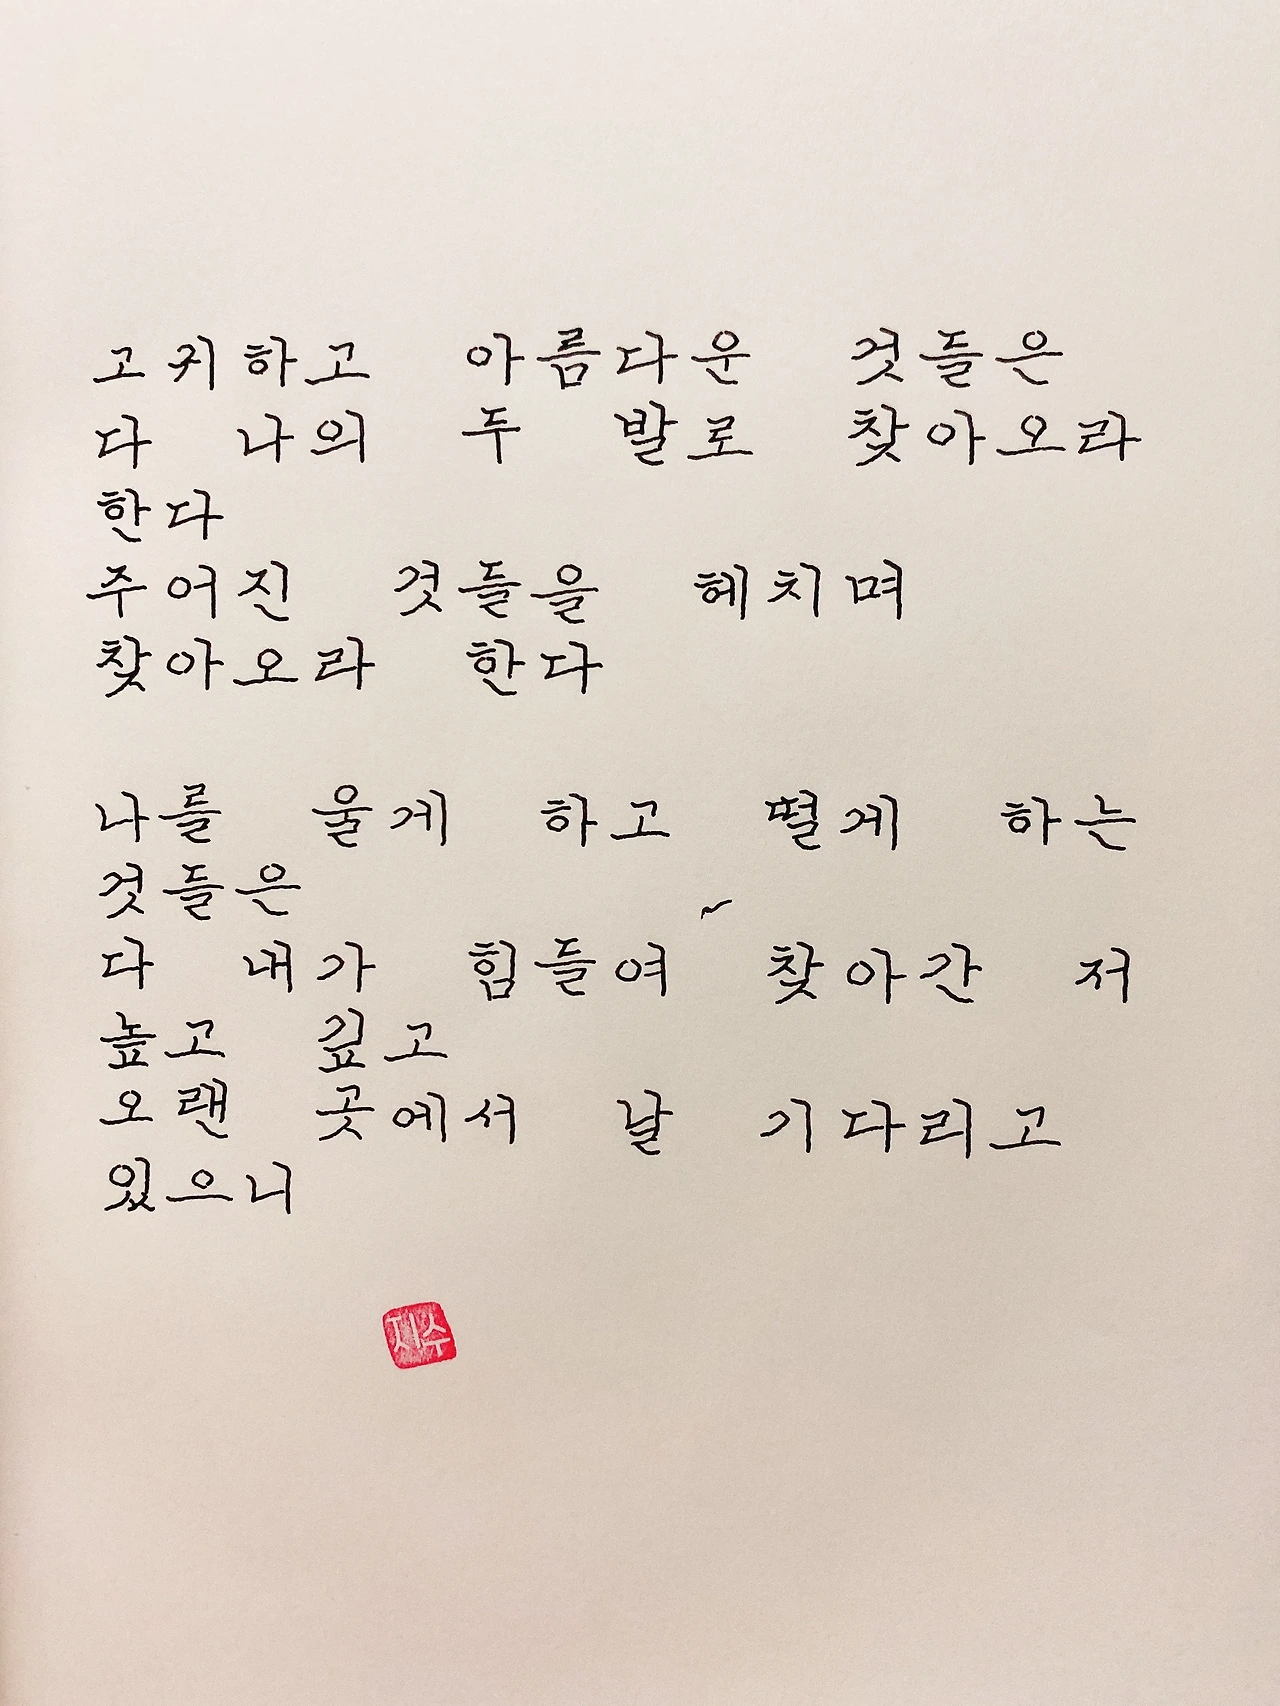 고귀하고 아름다운 것들은
다 나의 두 발로 찾아오라
한다
주어진 것들을 헤치며
찾아오라 한다
나를 울게 하고 떨게 하는
것들은
다 내가 힘들여 찾아간 저
높고 깊고
오랜 곳에서 날 기다리고
있으니
지수